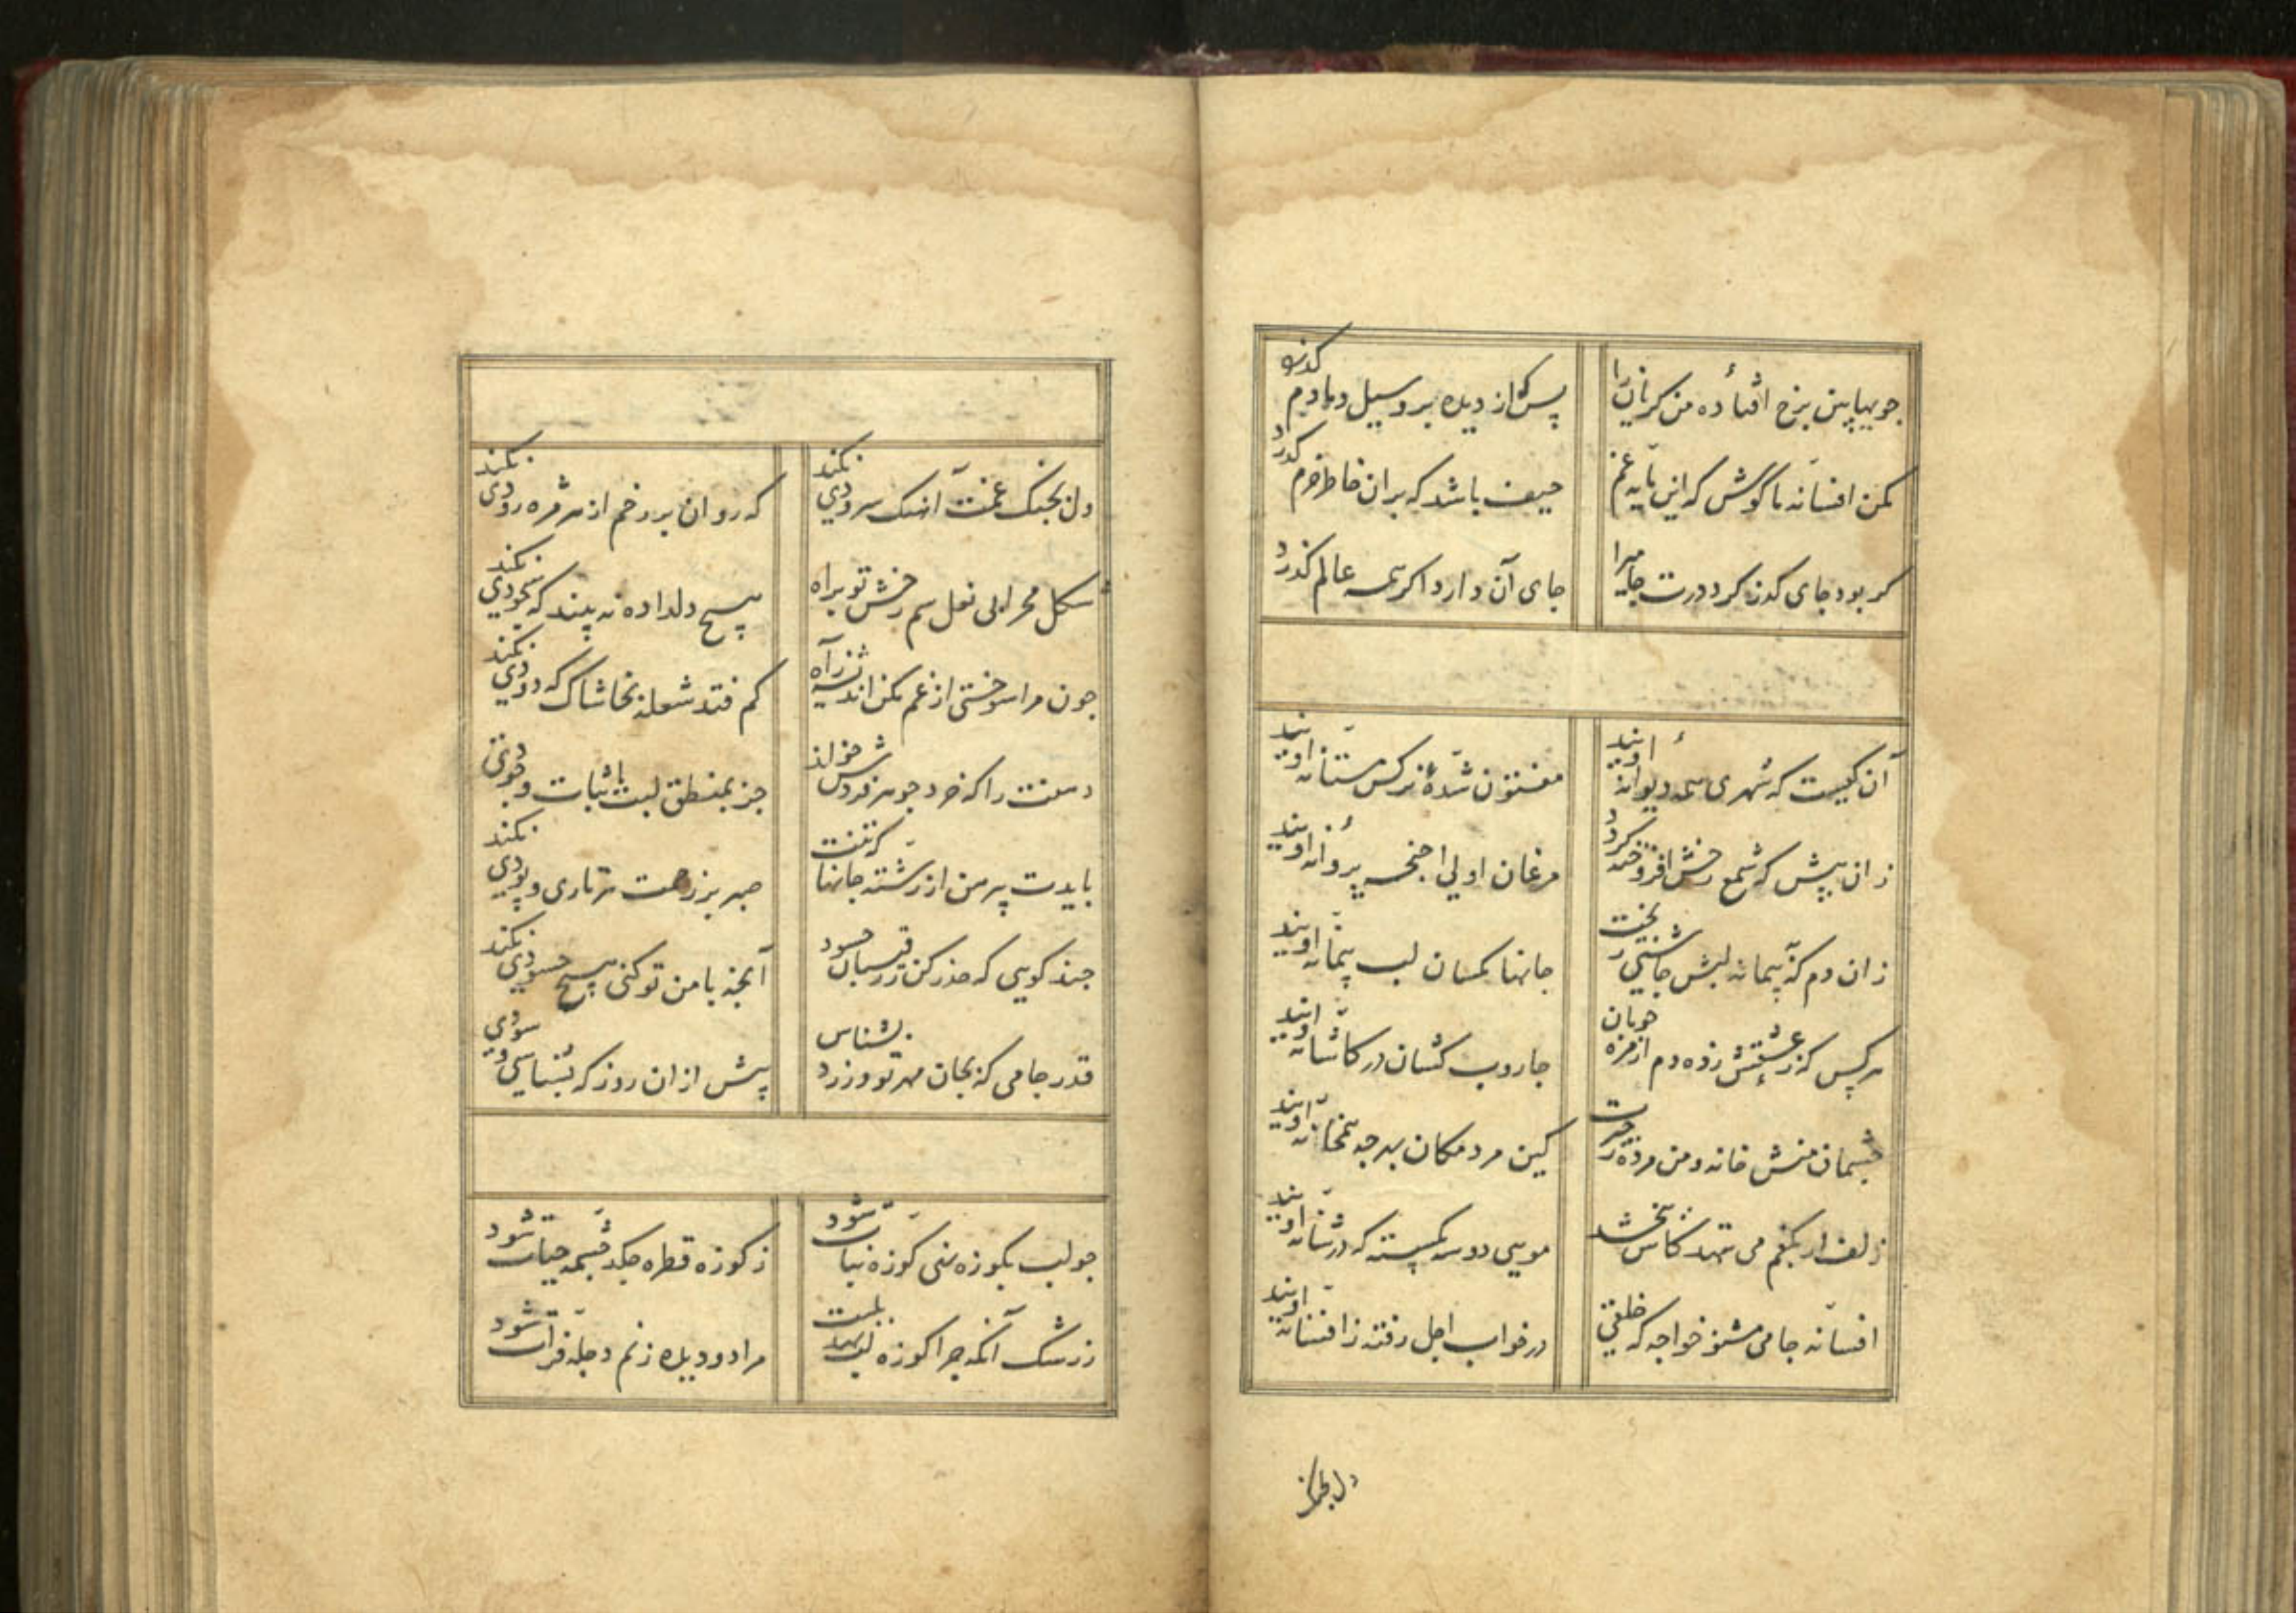 جویها بین برخ افتاده من گریان را
پس که از دیده برو سیل دمادم گذرد
مکن افسانه ما گوش که این مایه غم
حیف باشد که بران خاطر خرم گذرد
گر بود جای گذر گرد درت جامی را
جای آن دارد اگر از همه عالم گذرد
آن کیست که شهری همه دیوانه اویند
مفتون شده نرکس مستانه اویند
زان پیش که شمع رخش افروخته گردد
مرغان اولی اجنحه پروانه اویند
زان دم که پیمانه لبش چاشنیی
جانها کمسان لب پیمانه اویند
هر کس که ز عشقش زده دم از مژه خوبان
جاروب کشان در کاشانه اویند
چشمان منش خانه و من مرده ز حیرت
کین مردمکان بهر چه همخانه اویند
زلف ار بکفم می نهد شانش
مویی دوسه بکسسته که در شانه اویند
افسانه جامی مشنو خواجه که خلقی
در خواب اجل رفته ز افسانه اویند
دل بچنگ
دل بچنگ غمت آهنک سرودی نکند
که روان بر رخم از هر مژه رودی نکند
شکل محرابی نعل سم رخش تو براه
هیچ دلداده نه بیند که سجودی نکند
چون مرا سوختی از غم مکن اندیشه ز آه
کم فتد شعله بخاشاک که دودی نکند
دهنت را که خرد جوهر فردش خواند
جز بمنطق لبت اثبات وجودی نکند
بایدت پیرهن از رشته جانها که تنت
صبر بر زحمت هر تاری و پودی نکند
چند کویی که حذر کن ز رقیبان حسود
آنچه با من تو کنی هیچ حسودی نکند
قدر جامی که بجان مهر تو ورزد بشناس
پیش ازان روز که بشناسی و سودی نکند
چو لب بکوزه نهی کوزه نبات شود
ز کوزه قطره چکد چشمه حیات شود
ز رشک آنکه چرا کوزه لب نهد بلبت
مرا دو دیده ز نم دجله فرات شود